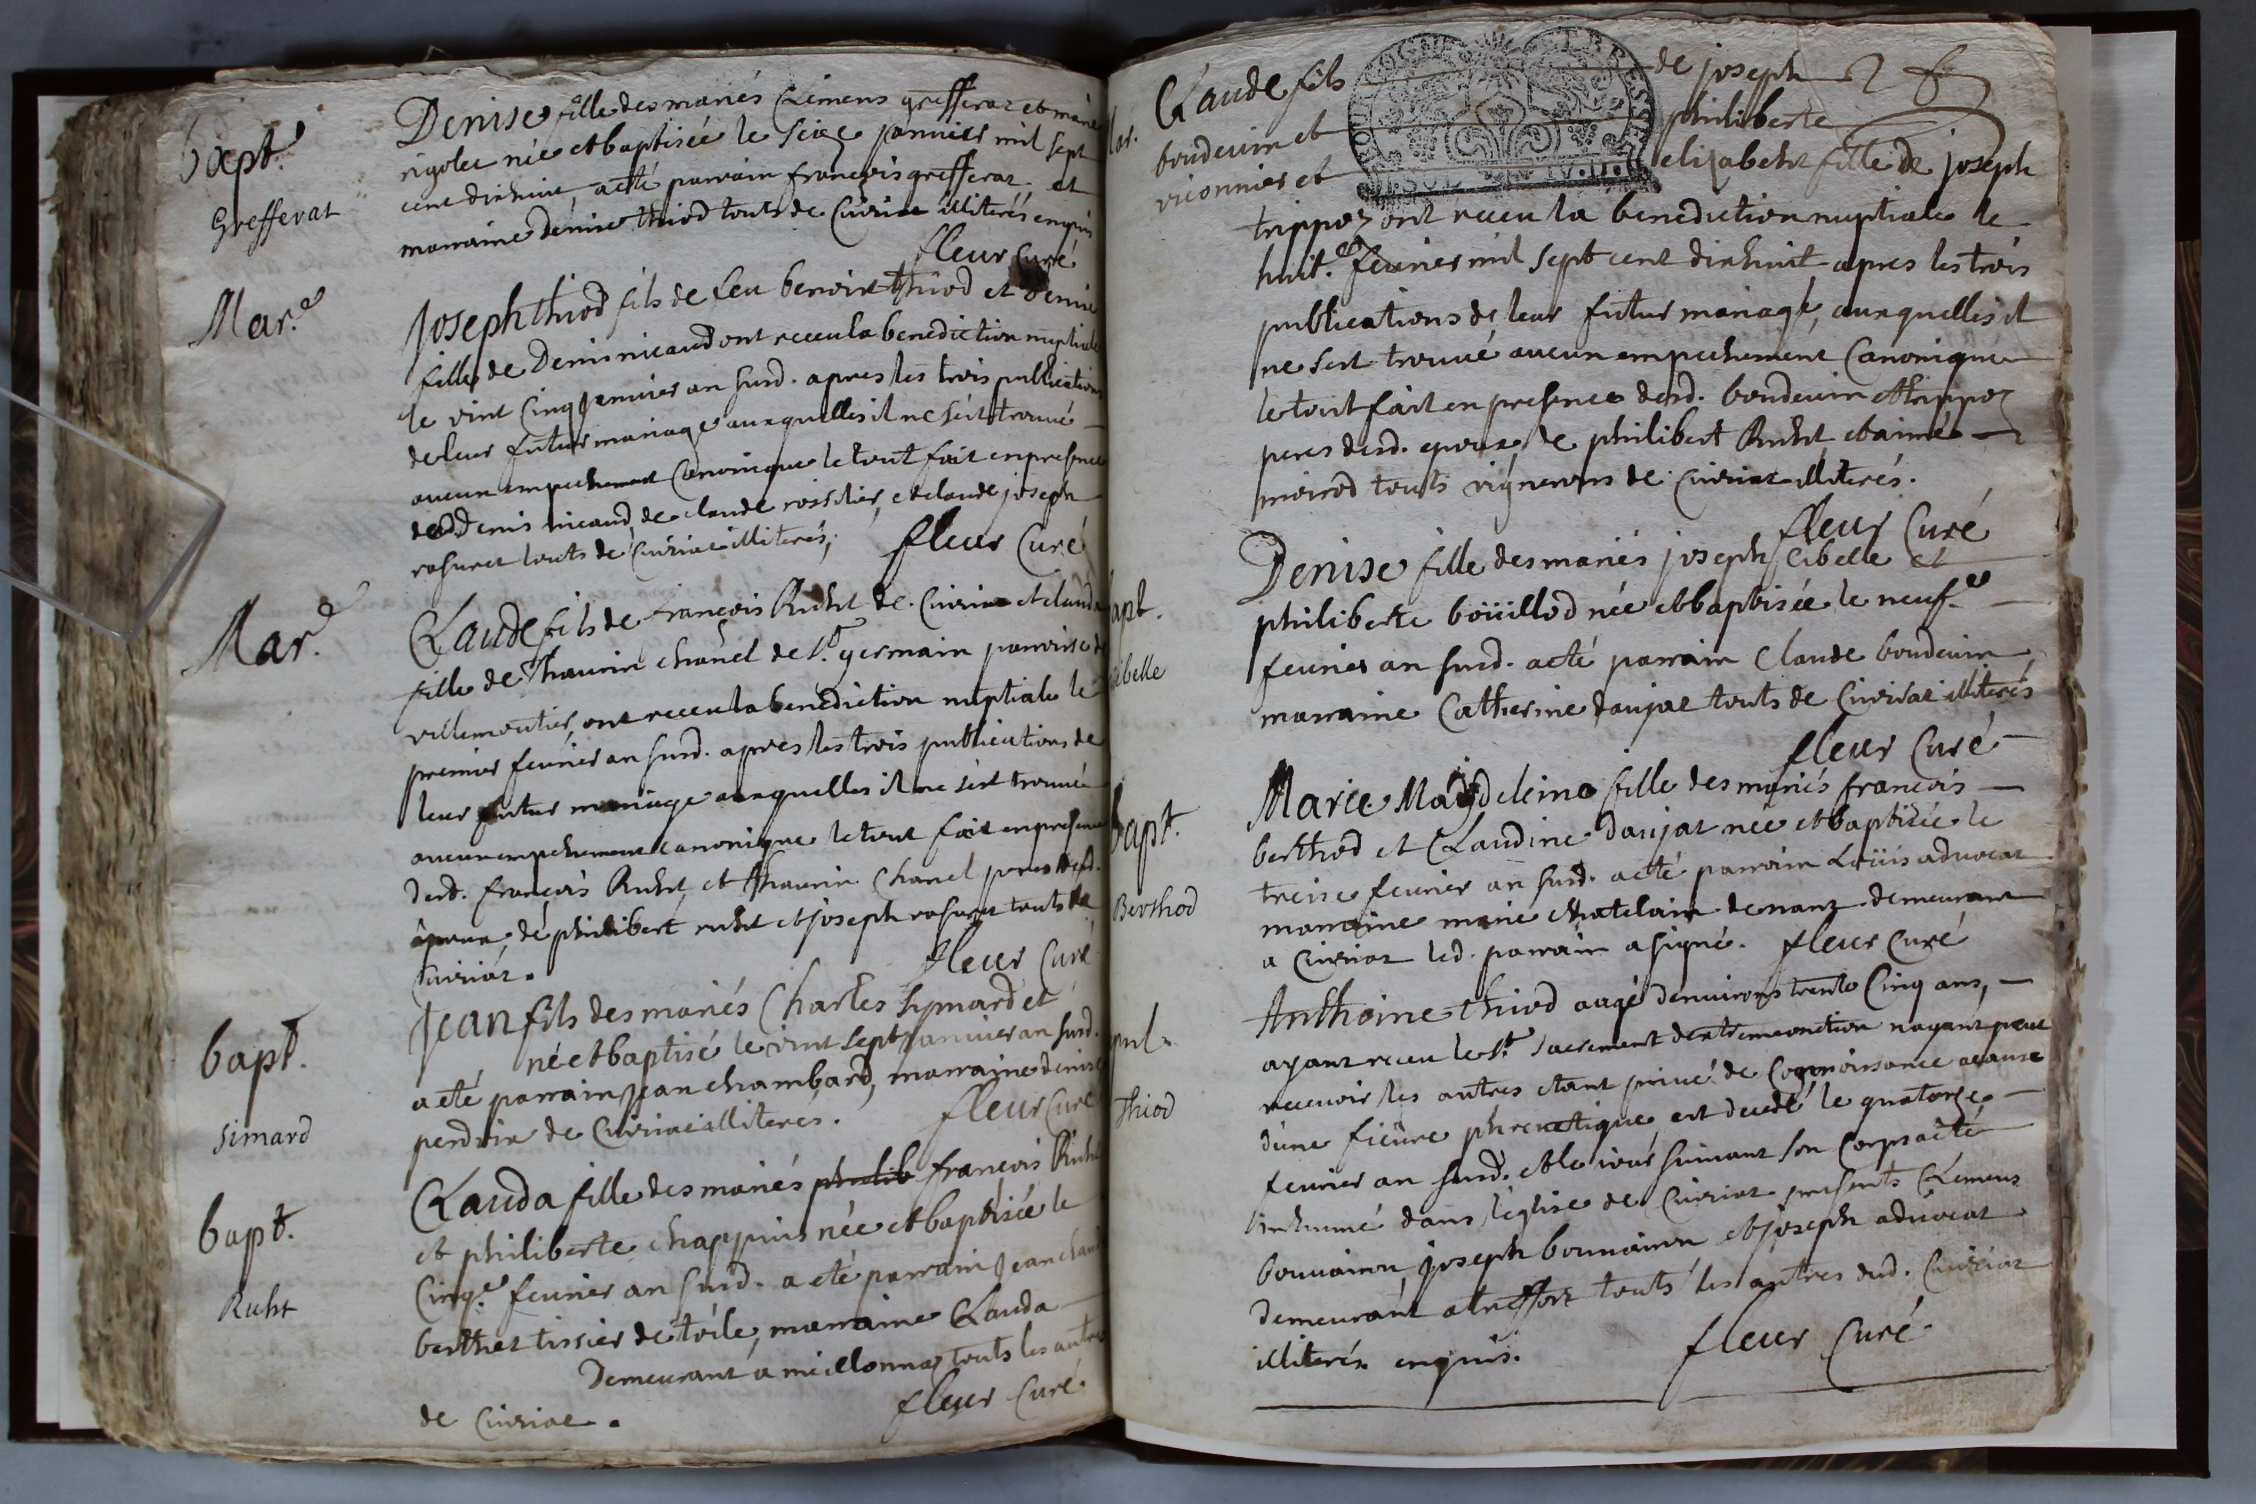 bapt.
Grefferat
Denise fille des mariés Clemens grefferat et marie
rigolet née et baptisée le seize januier mil sept
cent dixhuit, a eté parrain françois grefferat et
marraine denise thiod touts de Cuisiat illiterés enquis
fleur Curé
Mar.e
Joseph thiod fils de feu benoist thiod et Denise
fille de Denis nicaud ont receu la benediction nuptiale
le vint Cinq januier an susd. apres les trois publications
de leur futur mariage auxquelles il ne s'est trouué
aucun empechement Canonique le tout fait en presence
dud. Denis nicaud, de claude rossetier, et claude joseph
rosuret touts de Cuisiat illiterés, fleur Curé
Mar.e
Claude fils de francois Ruht de Cuisiat et clauda
fille de Thaurin chanel de St. germain parroisse de
villemoutier, ont receu la benediction nuptiale le
premier feurier an susd. apres les trois publications de
leur futur mariage auxquelles il ne s'est trouué
aucun empechement canonique le tout fait en presence
desd. françois Ruht, et Thaurin Chanel peres desd.
epoux, de philibert ruht et joseph rosuret touts de
Cuisiat. fleur Curé
bapt.
Simard
Jean fils des mariés Charles Symard et
né et baptisé le vint sept januier an susd.
a eté parrain Jean chambard, marraine denise
perdrix de Cuisiat illiteres. fleur Curé
bapt.
Ruht
Clauda fille des mariés philib françois Ruht
et philiberte chappuis née et baptisée le
Cinq.e feurier an susd. a eté parrain Jean
berthet tissier de toile, marraine Clauda
Demeurant a meillonna touts les autres
de Cuisiat. fleur Curé.
Mar.
Claude fils de joseph
boudeuin et philiberte
viconnier et elizabeht fille de joseph
trippoz ont receu la benediction nuptiale le
huit.e feurier mil sept cent dixhuit apres les trois
publications de leur futur mariage, auxquelles il
ne s'est trouué aucun empechement Canonique
le tout fait en presence desd. boudeuin et trippoz
peres desd. epoux, de philibert Ruht et aimé
moirod touts vignerons de Cuisiat illiterés.
fleur Curé
bapt.
Sibelle
Denise fille des mariés joseph Sibelle et
philiberte boüillod née et baptisée le neuf.e
feurier an susd. a eté parrain Claude boudeuin
marraine Catherine daujat touts de Cuisiat illiterés
fleur Curé
bapt.
Berthod
Marie Magdeleine fille des mariés francois
berthod et Claudine daujat née et baptisée le
treise feurier an susd. a eté parrain Loüis aduocat
marraine marie chatelain de nanz demeurant
a Cuisiat led. parrain a signé. fleur Curé
pul.
Thiod
Anthoine thiod aagé d'enuirons trente Cinq ans,
ayant receu le St. Sacrement d'extremeonction nayant peut
receuoir les autres etant priué de Cognoissance acause
d'une fieüre phrenetique, est decedé le quatorze
feurier an susd. et le iour suiuant son Corps a eté
inhumé dans l'église de Cuisiat presents Clemens
bouuairon, joseph bouuairon et joseph aduocat
demeurant a treffort touts les autres dud. Cuisiat
illiterés enquis. fleur Curé.